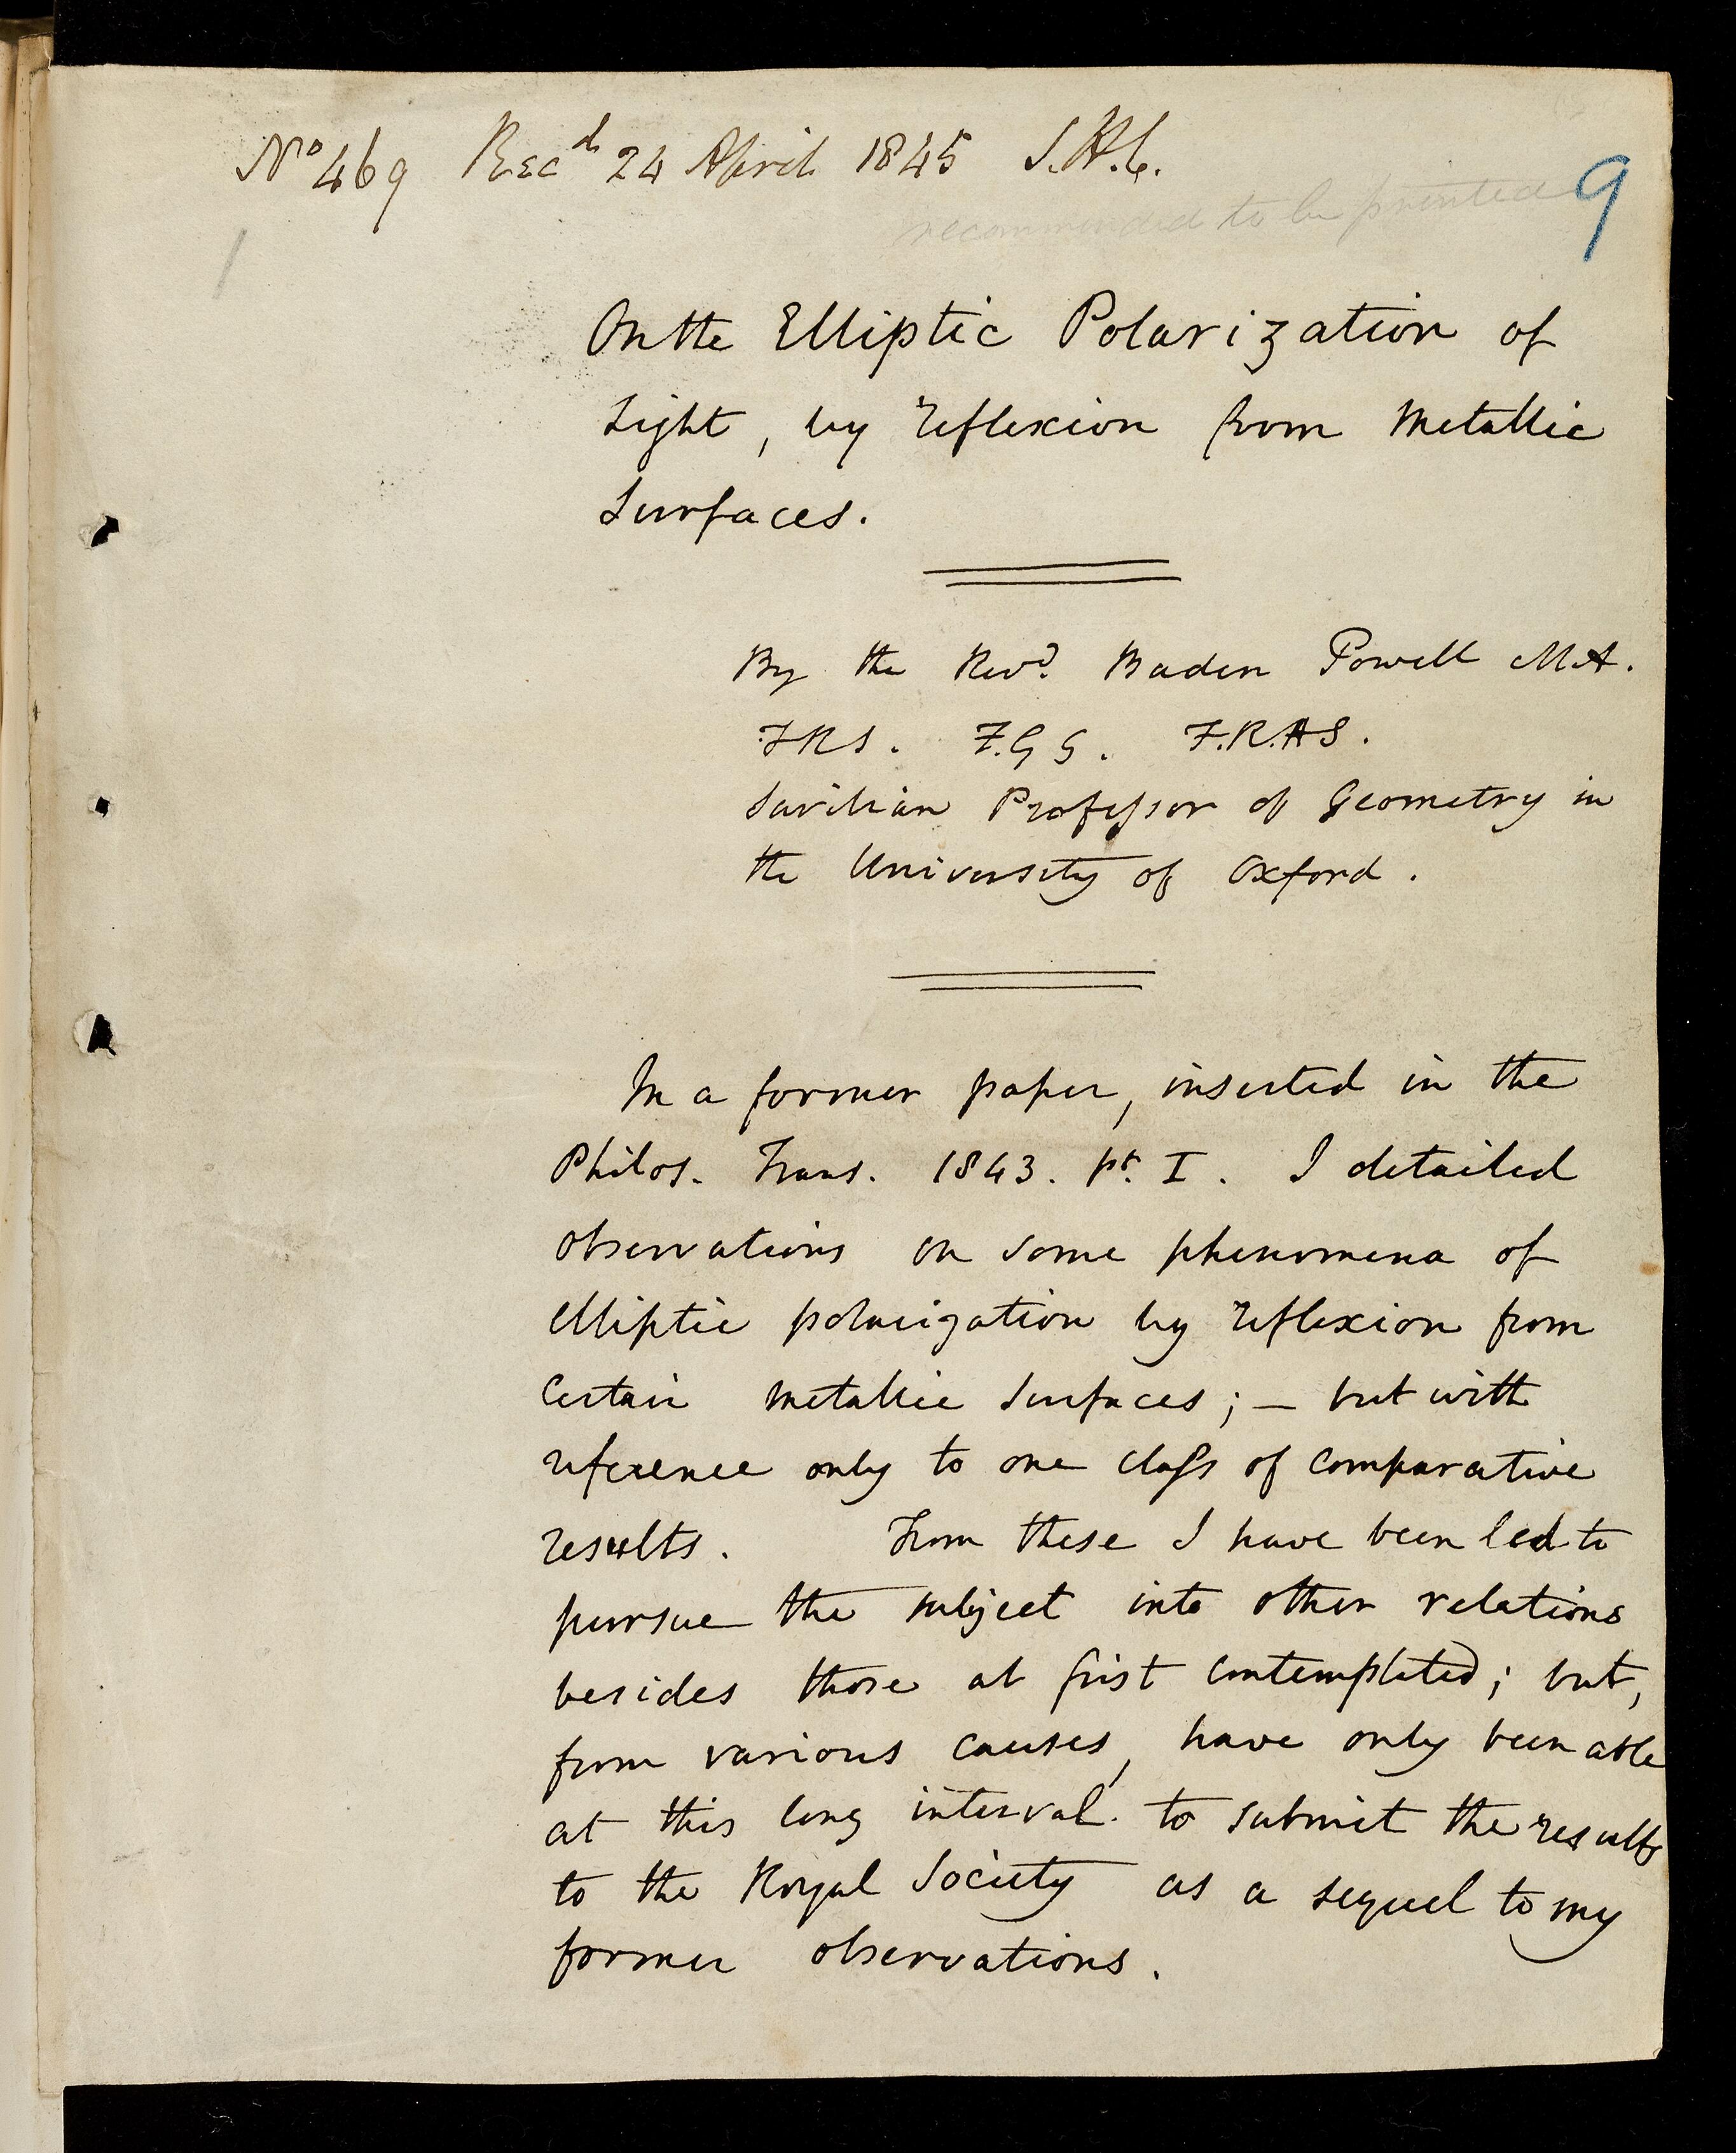 No 469 Recd 24 April 1845 S.H.C.
recommended to be printed
9
1
On the Elliptic Polarization of
Light, by reflexion from Metallic
Surfaces.
By the Revd. Baden Powell M.A.
FRS. F.G.S. F.R.A.S.
Savilian Professor of Geometry in
the University of Oxford.
In a former paper, inserted in the
Philos. Trans. 1843. pt. I. I detailed
observations on some phenomena of
elliptic polarization by reflexion from
certain metallic surfaces; – but with
reference only to one class of comparative
results. From these I have been led to
pursue the subject into other relations
besides those at first contemplated; but,
from various causes, have only been able
at this long interval to submit the results
to the Royal Society as a sequel to my
former observations.